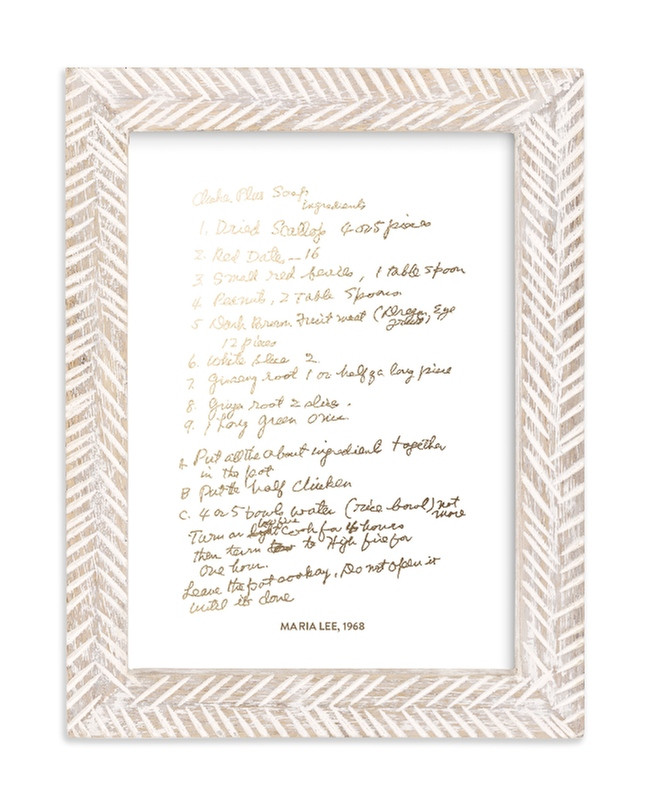 Plus Soup
ingredients
1. Dried Scallop 4 or 5 pieces
2. Red Date -- 16
3. Small red berries, 1 table spoon
4. Peanuts, 2 Table Spoons
5 Dark Brown Fruit meat (Dragon Eye
12 pieces
6. White 2.
7. Ginseng root 1 or half of a long piece
8. root 2 slice.
9. 1 Long green onion
A. Put all the about ingredient together
in the pot
B Put the half Chicken
C. 4 or 5 bowls water (rice bowl) not
more
Turn on low fire Cook for 4 hours
then turn to High fire for
One hour.
Leave the pot cookay, Do not open it
until it's done
MARIA LEE, 1968